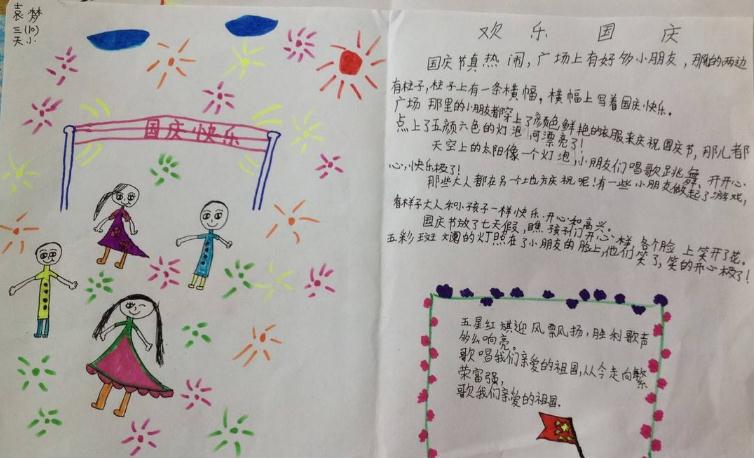 袁梦
三(10)
天小
国庆快乐
欢乐国庆
国庆节真热闹,广场上有好多小朋友,那的两边
有柱子,柱子上有一条横幅,横幅上写着国庆快乐。
广场那里的小朋友都穿上了颜色鲜艳的衣服来庆祝国庆节,那儿都
点上了五颜六色的灯泡,可漂亮了!
天空上的太阳像一个灯泡,小朋友们唱歌跳舞,开开心
心,快乐极了!
那些大人都在另个地方庆祝呢!有一些小朋友做起了游戏,
有样子大人和小孩子一样快乐.开心和高兴。
国庆节放了七天假,瞧,孩子们开心样,各个脸上笑开了花。
五彩斑斓的灯照在了小朋友的脸上,他们笑了,笑的开心极了!
五星红旗迎风飘扬,胜利歌声
多么响亮。
歌唱我们亲爱的祖国,从今走向繁
荣富强,
歌我们亲爱的祖国.